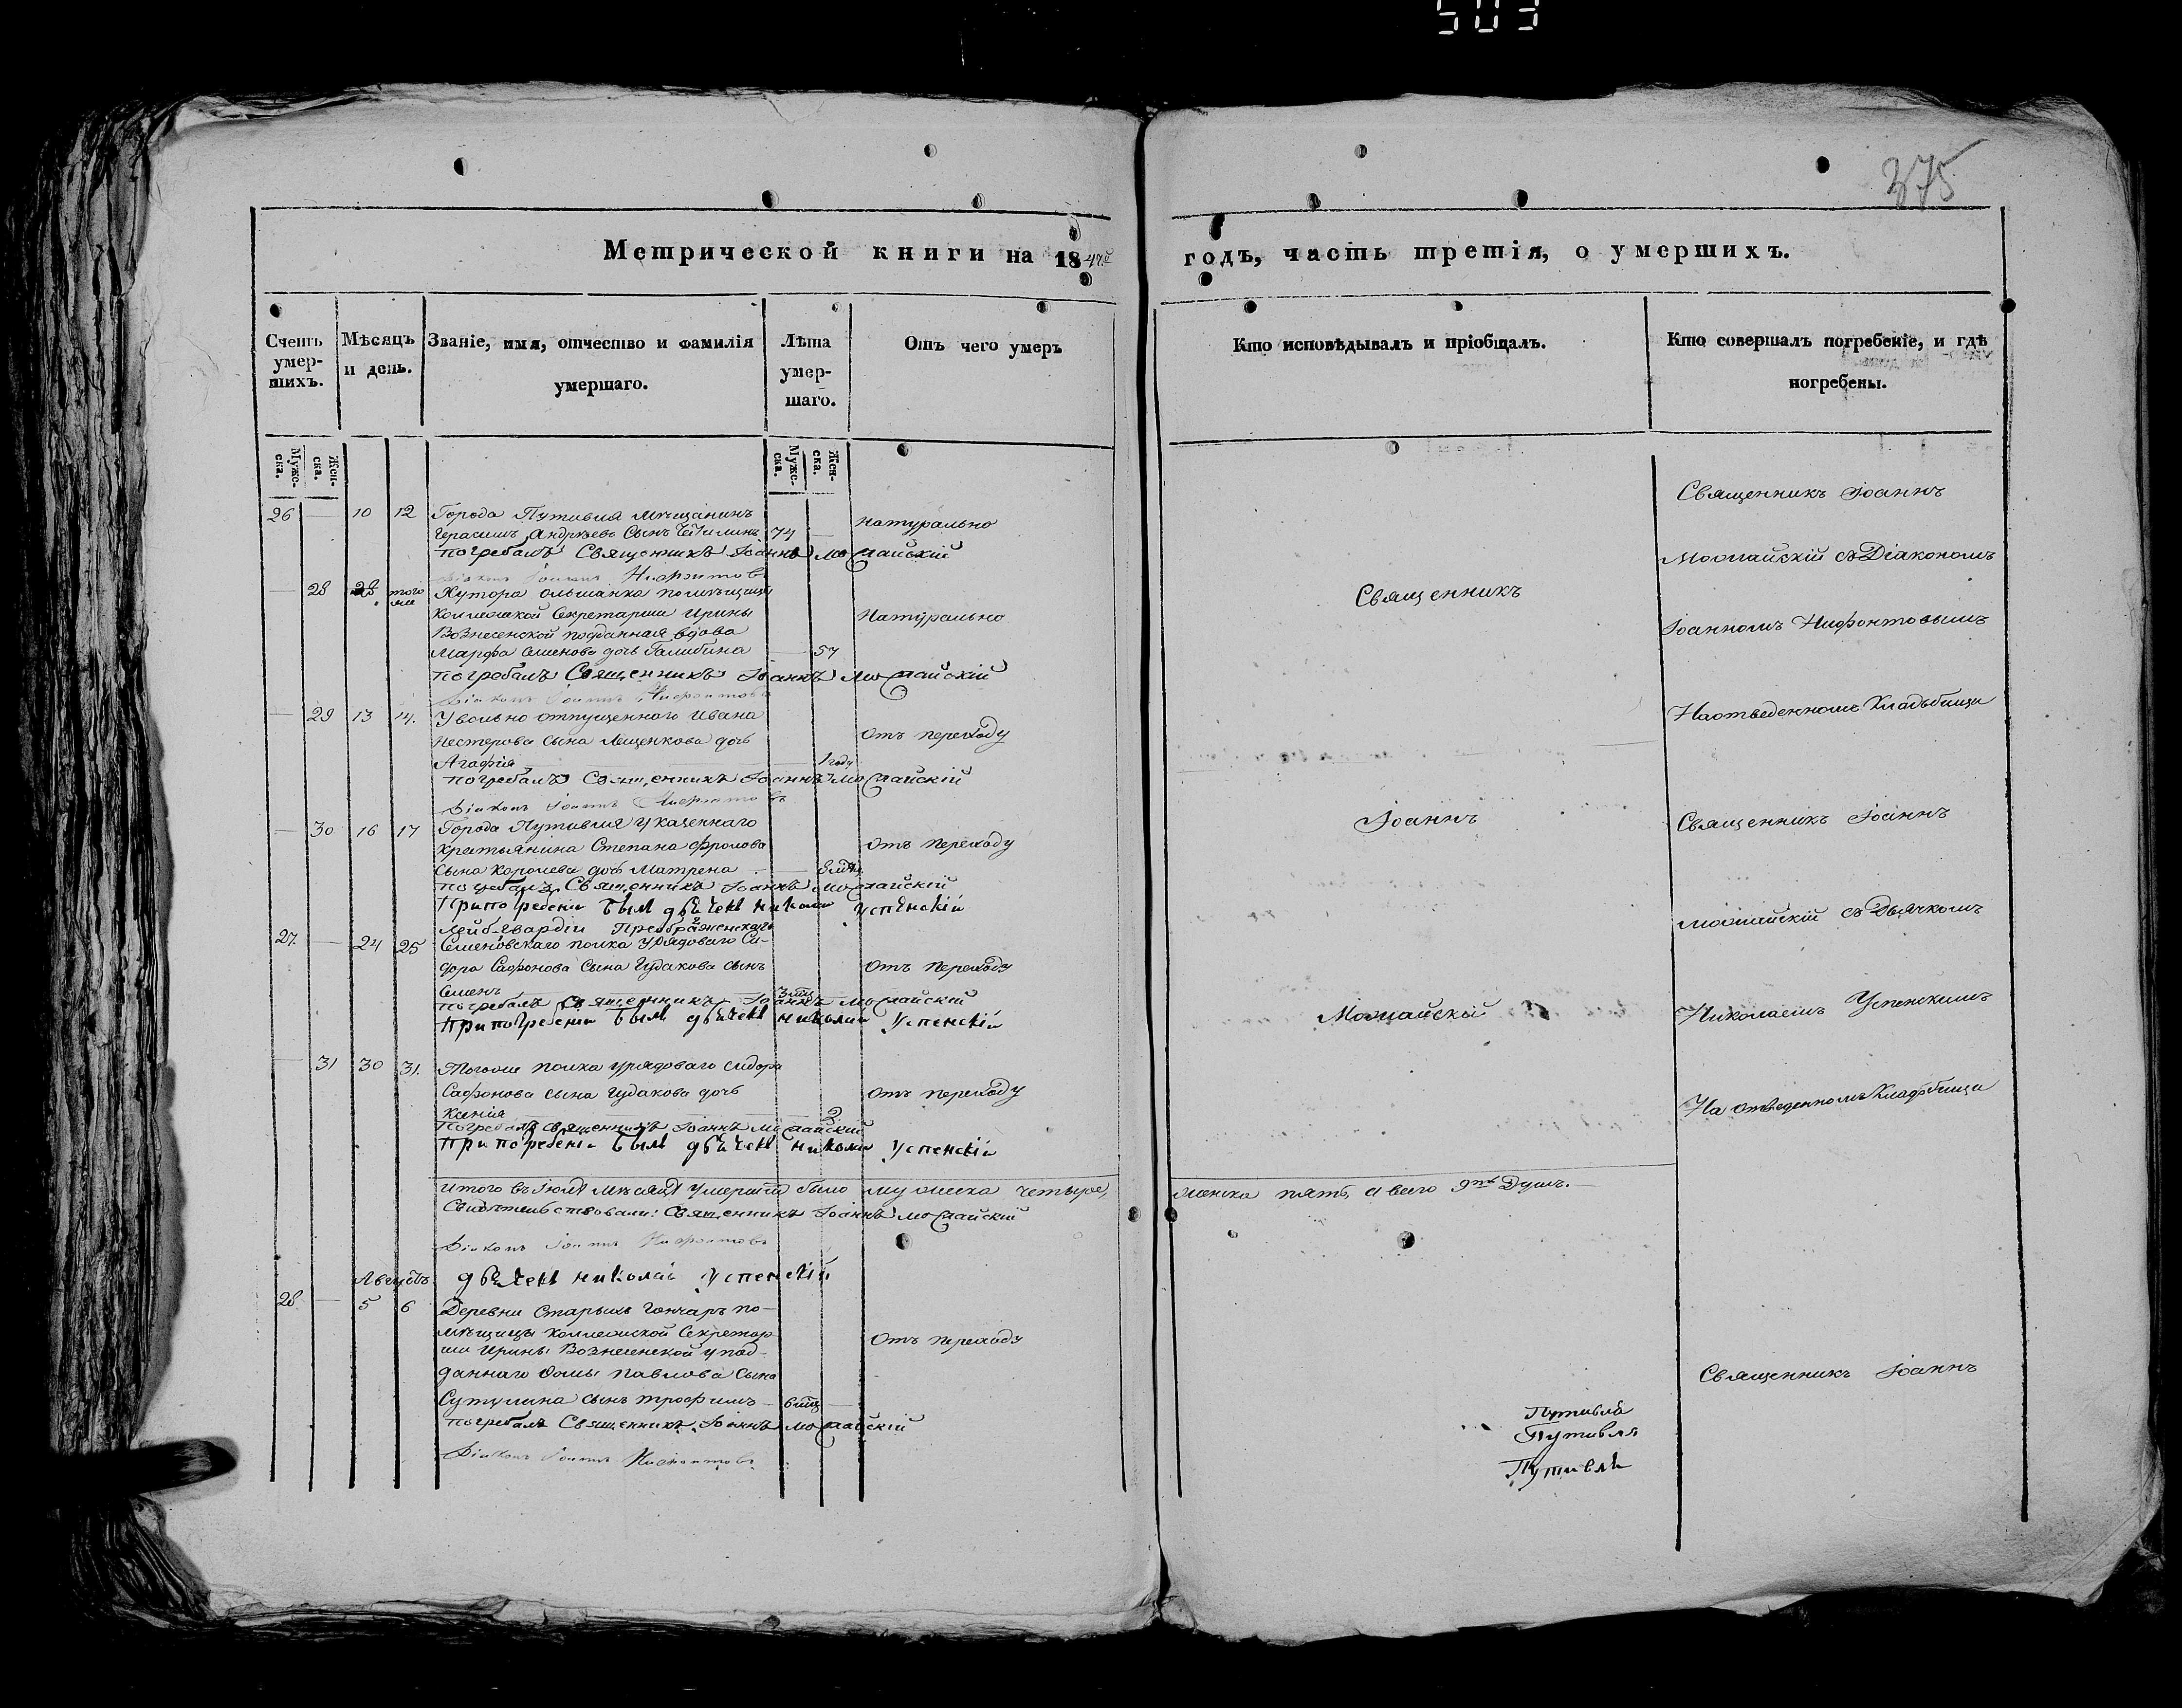 503
375
Метрической книги на 1847й годъ, часть третія, о умершихъ.
Счетъ умер-шихъ.
Мѣсяцъ и день.
Званіе, имя, отчество и фамилія умершаго.
Лѣта умер-шаго.
Отъ чего умеръ
Кто исповѣдывалъ и пріобщалъ.
Кто совершалъ погребеніе, и гдѣ погребены.
Мужес-ка.
Жен-ска.
Мужес-ка.
Жен-ска.
26 — 10 12 Города Путивля мѣщанинъ
Герасимъ Андрѣевъ Сынъ 74 — Натурально
погребалъ Священникъ Іоаннъ Можайскій
Діаконъ Іоаннъ Нифонтовъ
— 28 28 того же Хутора Ольшанка помѣщицы
Коллежской Секретарши Ирины Натурально
Вознесенской подданная вдова
Марфа Семенова дочь Галибина — 57
погребалъ Священникъ Іоаннъ Можайскій
Діаконъ Іоаннъ Нифонтовъ
— 29 13 14. Увольно отпущеннаго Ивана
Нестерова сына Лященкова дочь Отъ переходу
Агафія — 1 году
погребалъ Священникъ Іоаннъ Можайскій
Діаконъ Іоаннъ Нифонтовъ
— 30 16 17 Города Путивля у казеннаго
крестьянина Степана Фролова Отъ переходу
сына Королева дочь Матрена — 8 мѣц
погребалъ Священникъ Іоаннъ Можайскій
При погребеніи былъ дьячекъ Николай Успенскій
Лейб-Гвардіи Преображенскаго
27. — 24 25 Семеновскаго полка у рядоваго Си-
дора Сафонова сына Гудакова сынъ Отъ переходу
Семенъ 3 мц
погребалъ Священникъ Іоаннъ Можайскій
При погребеніи былъ дьячекъ Николай Успенскій
— 31 30 31. Тогоже полка у рядоваго Сидора
Сафонова сына Гудакова дочь Отъ переходу
Ксенія — 2
Погребалъ Священникъ Іоаннъ Можайскій
При погребеніи былъ дьячекъ Николай Успенскій
Итого въ Іюлѣ мѣсяцѣ умершихъ было мужеска четыре, женска пять, а всего 9ть Душъ.
Свидѣтельствовали: Священникъ Іоаннъ Можайскій
Діаконъ Іоаннъ Нифонтовъ
дьячекъ Николай Успенскій
Августъ
28 — 5 6 Деревни Старыхъ Гончаръ по-
мѣщицы Коллежской Секретар-
ши Ирины Вознесенской у под- Отъ переходу
даннаго Фомы Павлова Сына
Сутулина сынъ Трофимъ 6 мц —
погребалъ Священникъ Іоаннъ Можайскій
Діаконъ Іоаннъ Нифонтовъ
Священникъ
Іоаннъ
Можайскій
Священникъ Іоаннъ
Можайскій съ Діакономъ
Іоанномъ Нифонтовымъ
На отведенномъ Кладьбищи
Священникъ Іоаннъ
Можайскій съ Дьячкомъ
Николаемъ Успенскимъ
На отведенномъ Кладьбищи
Священникъ Іоаннъ
Путивля
Путивля
Путивля